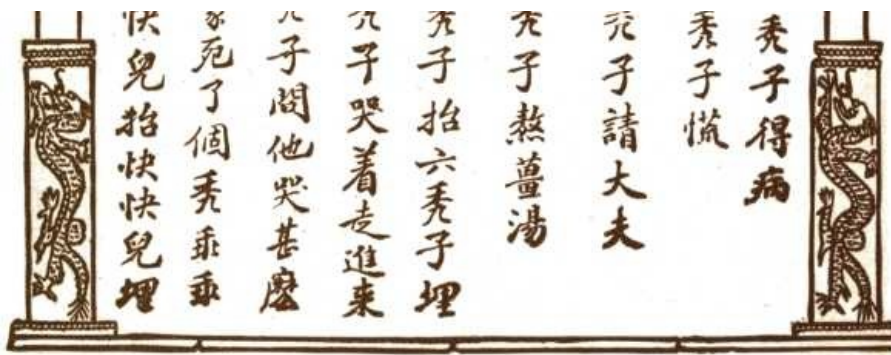 禿子得病
禿子慌
禿子請大夫
禿子熬薑湯
禿子抬六禿子埋
禿子哭着走進來
子問他哭甚麽
家死了個禿乖乖
快兒抬快快兒埋